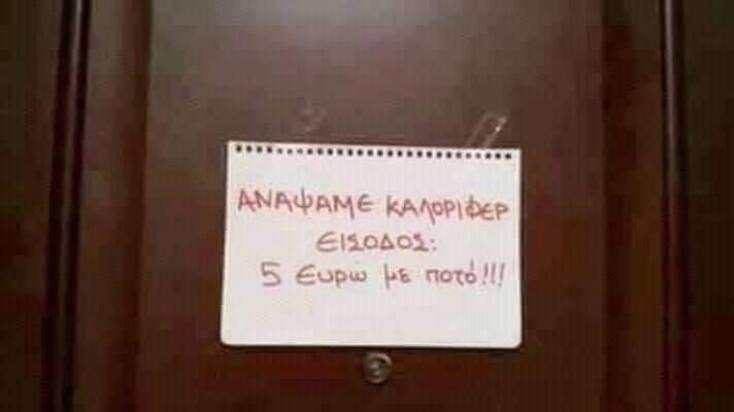 ΑΝΑΨΑΜΕ ΚΑΛΟΡΙΦΕΡ
ΕΙΣΟΔΟΣ:
5 Ευρώ με ποτό!!!